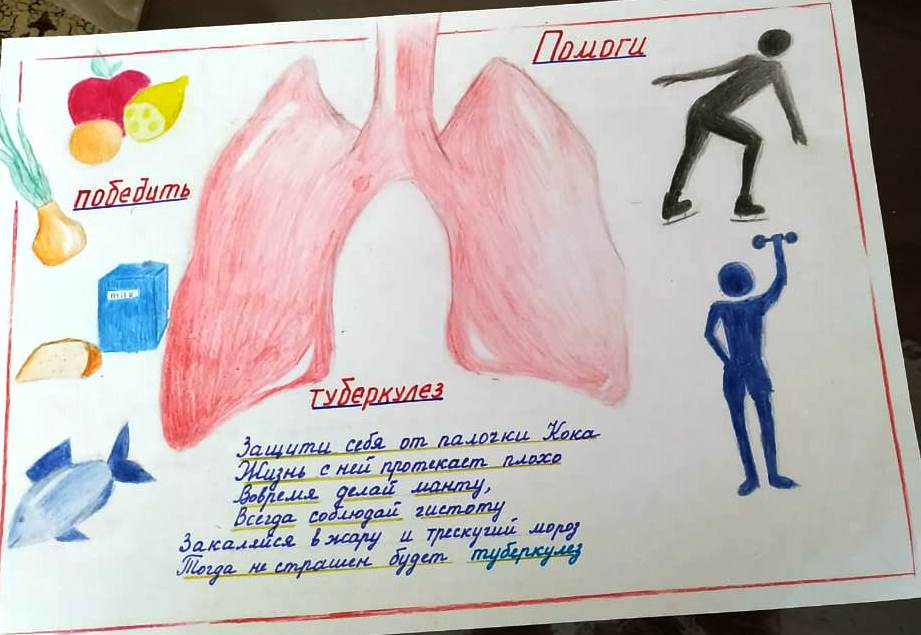 Помоги
победить
milk
туберкулез
Защити себя от палочки Кока
Жизнь с ней протекает плохо
Вовремя делай манту,
Всегда соблюдай гистоту
Закаляйся в жару и трескучий мороз
Тогда не страшен будет туберкулез